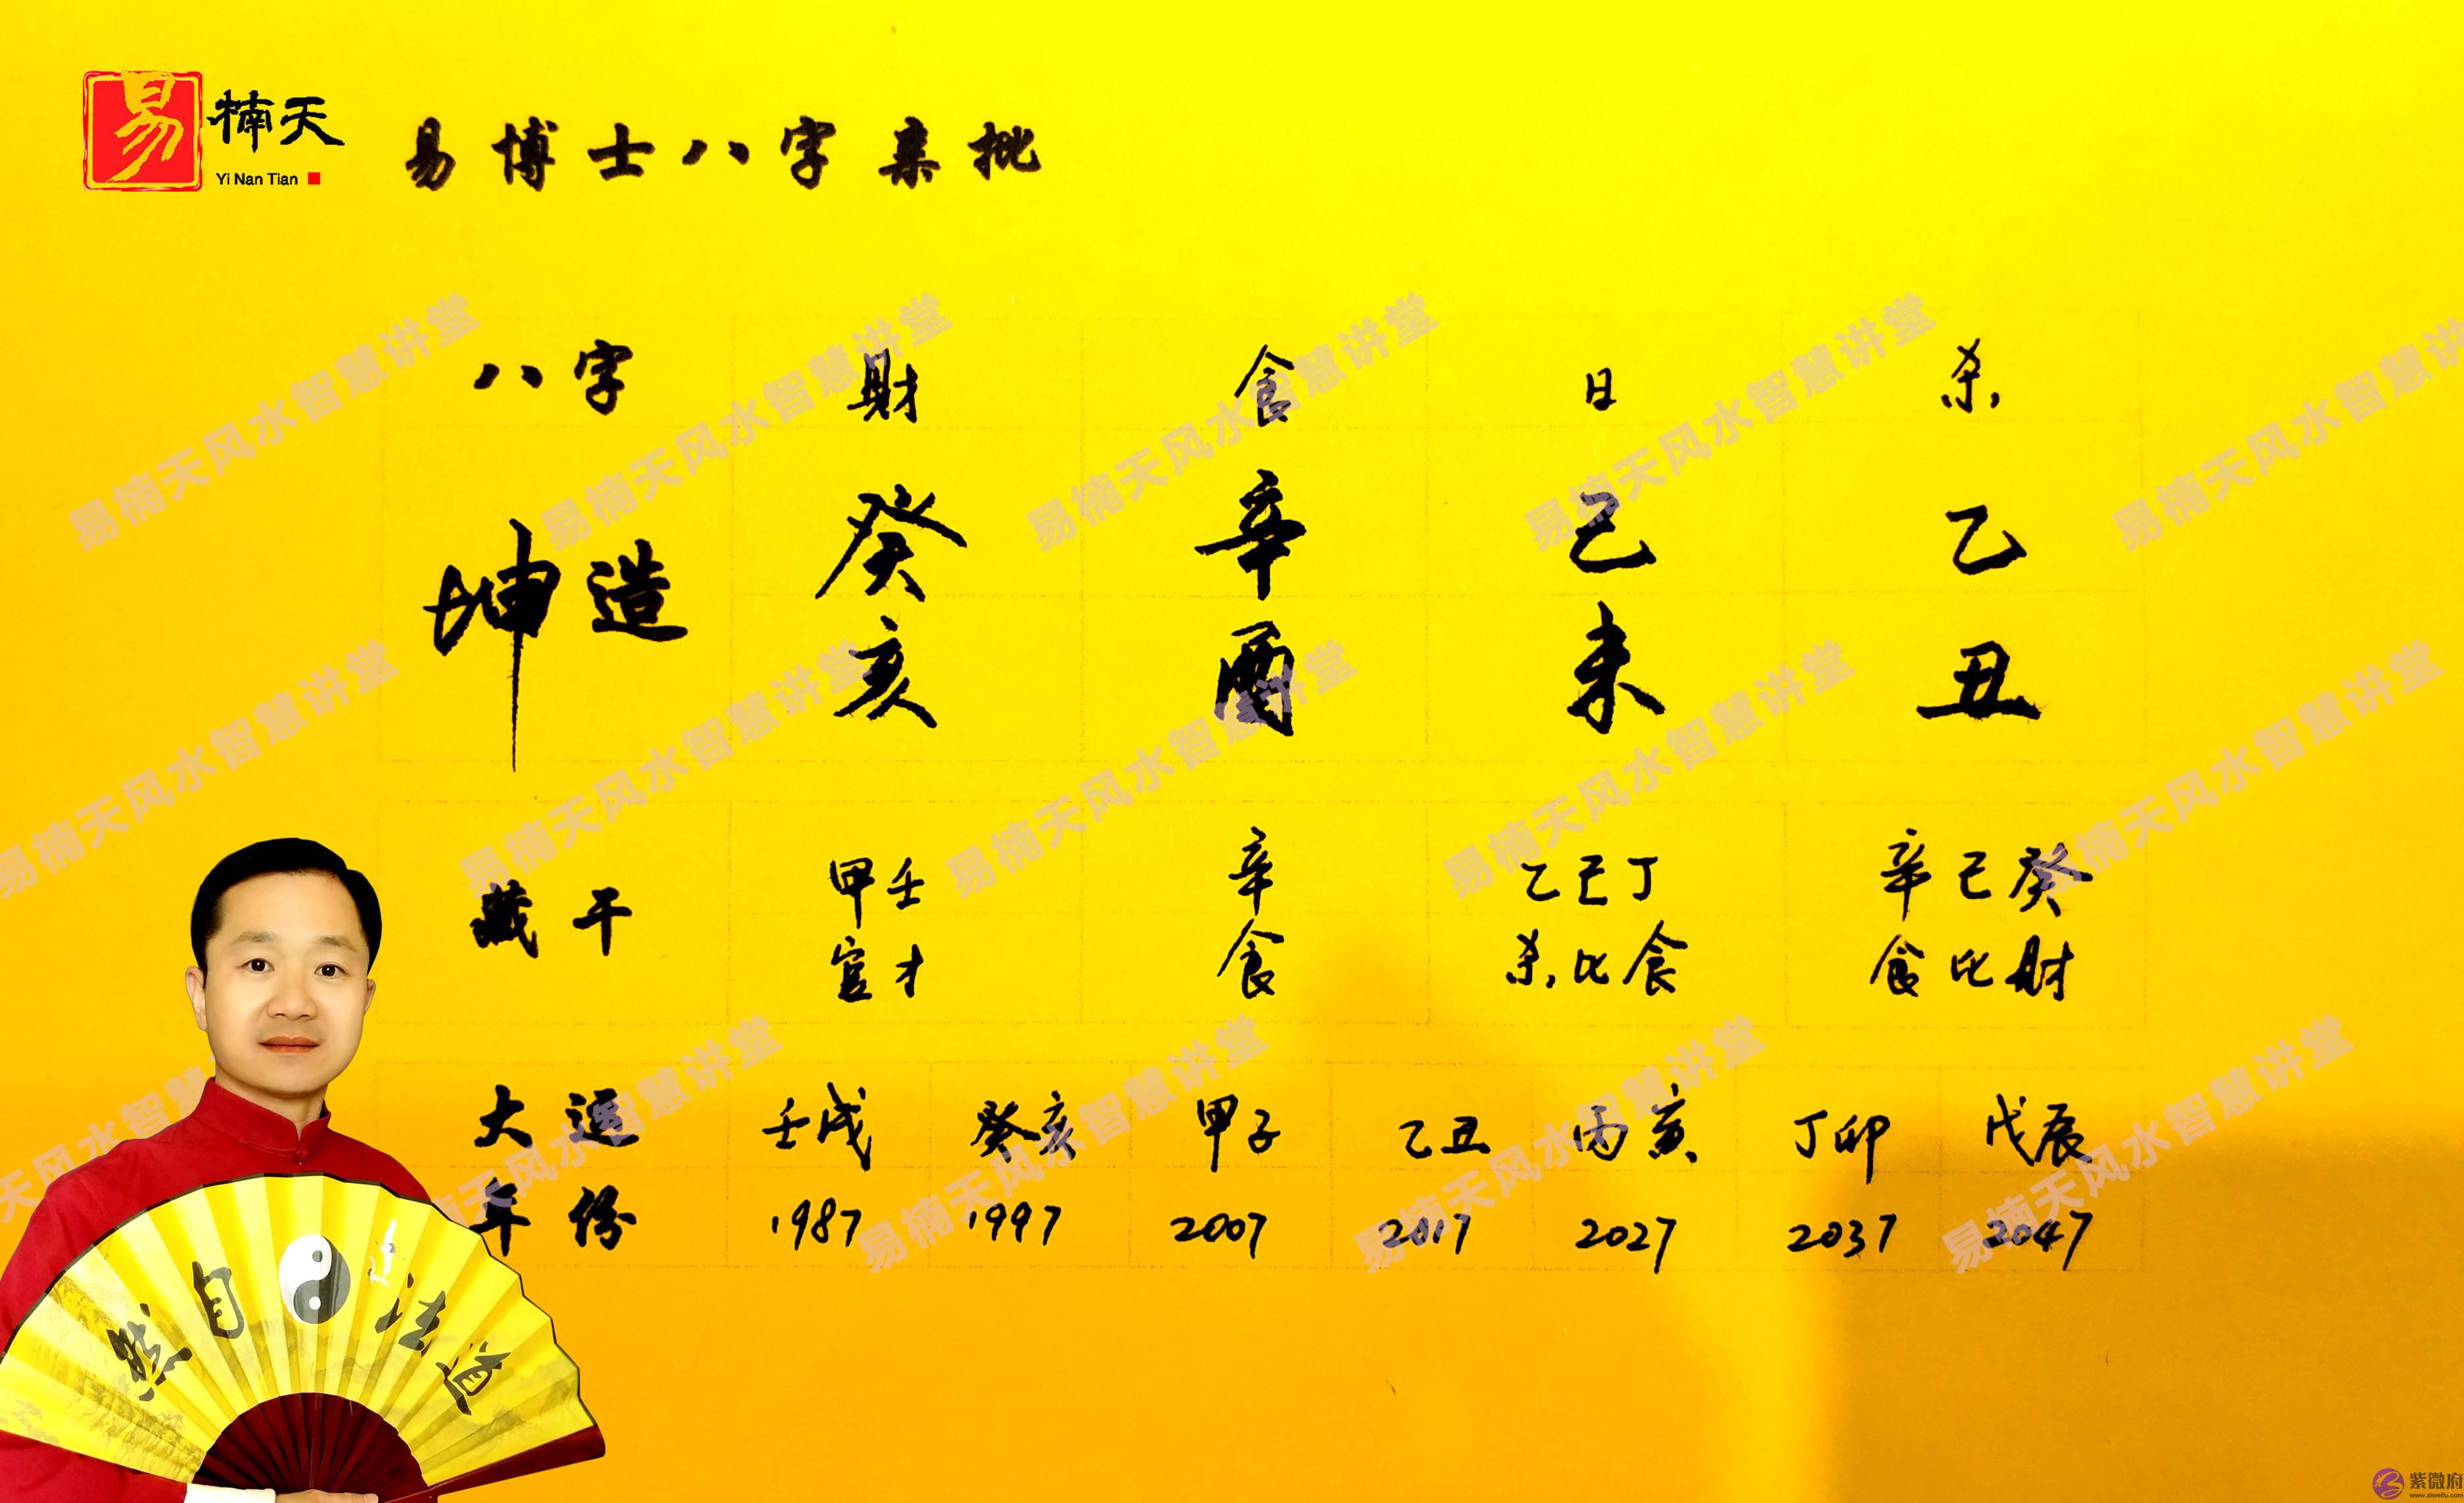 易 楠天
Yi Nan Tian
易博士八字亲批
八字 财 食 日 杀
坤造 癸 辛 己 乙
亥 酉 未 丑
藏干 甲壬 辛 乙己丁 辛己癸
官才 食 杀比食 食比财
大运 壬戌 癸亥 甲子 乙丑 丙寅 丁卯 戊辰
年份 1987 1997 2007 2017 2027 2037 2047
然自法道
易楠天风水智慧讲堂
紫微府
www.ziweifu.com